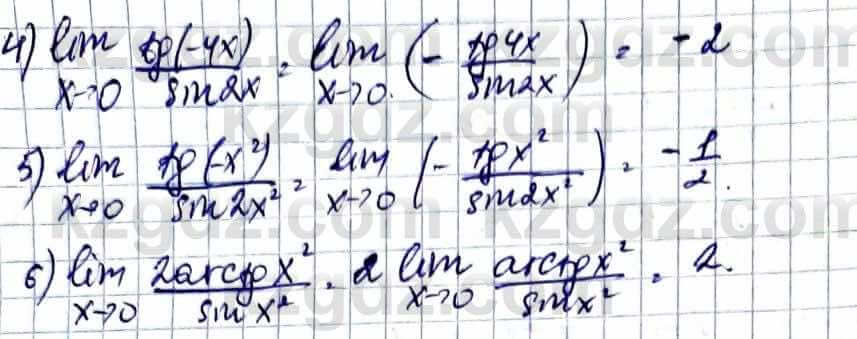 4) lim x→0 tg(-4x)/sin2x = lim x→0. (- tg4x/sin2x) = -2
5) lim x→0 tg(-x²)/sin2x² = lim x→0 (- tgx²/sin2x²) = -1/2.
6) lim x→0 2arctgx²/sinx² = 2 lim x→0 arctgx²/sinx² = 2.
kzgdz.com